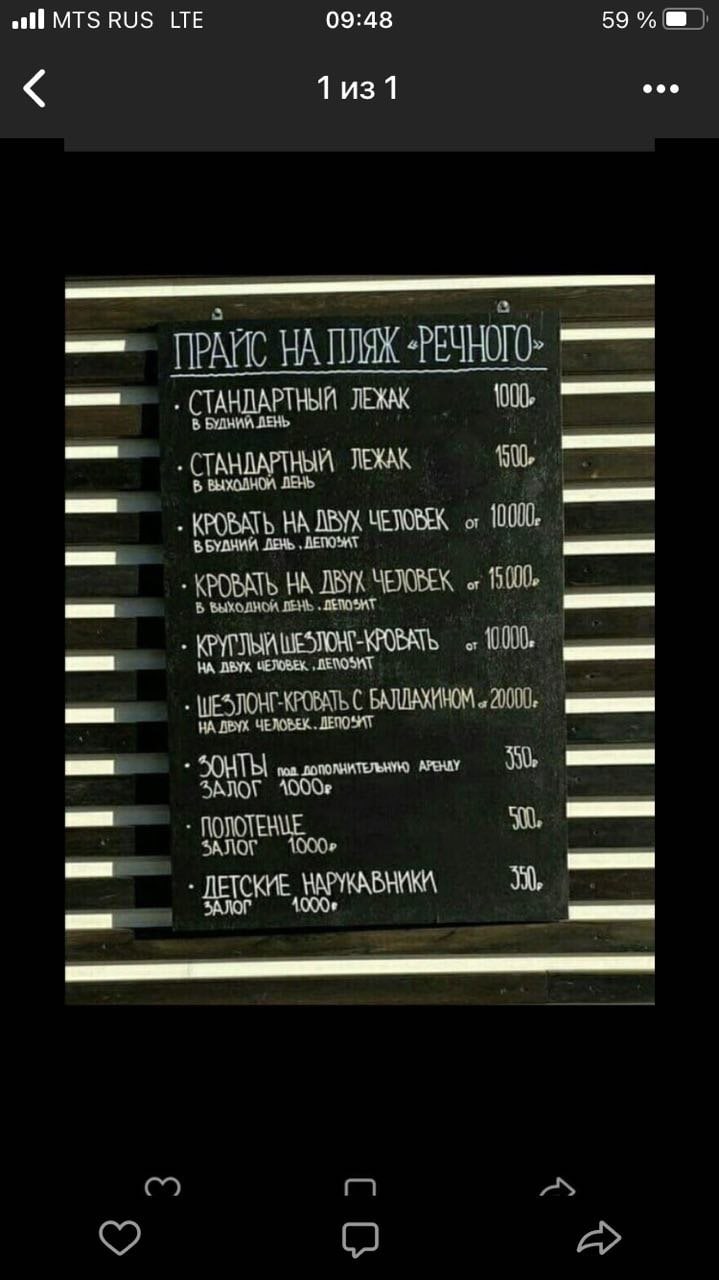 MTS RUS LTE 09:48 59 %
1 из 1
ПРАЙС НА ПЛЯЖ «РЕЧНОГО»
• СТАНДАРТНЫЙ ЛЕЖАК 1000₽
В БУДНИЙ ДЕНЬ
• СТАНДАРТНЫЙ ЛЕЖАК 1500₽
В ВЫХОДНОЙ ДЕНЬ
• КРОВАТЬ НА ДВУХ ЧЕЛОВЕК ОТ 10.000₽
В БУДНИЙ ДЕНЬ . ДЕПОЗИТ
• КРОВАТЬ НА ДВУХ ЧЕЛОВЕК ОТ 15.000₽
В ВЫХОДНОЙ ДЕНЬ . ДЕПОЗИТ
• КРУГЛЫЙ ШЕЗЛОНГ-КРОВАТЬ ОТ 10.000₽
НА ДВУХ ЧЕЛОВЕК . ДЕПОЗИТ
• ШЕЗЛОНГ-КРОВАТЬ С БАЛДАХИНОМ ОТ 20000₽
НА ДВУХ ЧЕЛОВЕК . ДЕПОЗИТ
• ЗОНТЫ ПОД ДОПОЛНИТЕЛЬНУЮ АРЕНДУ 350₽
ЗАЛОГ 1000₽
• ПОЛОТЕНЦЕ 500₽
ЗАЛОГ 1000₽
• ДЕТСКИЕ НАРУКАВНИКИ 350₽
ЗАЛОГ 1.000₽